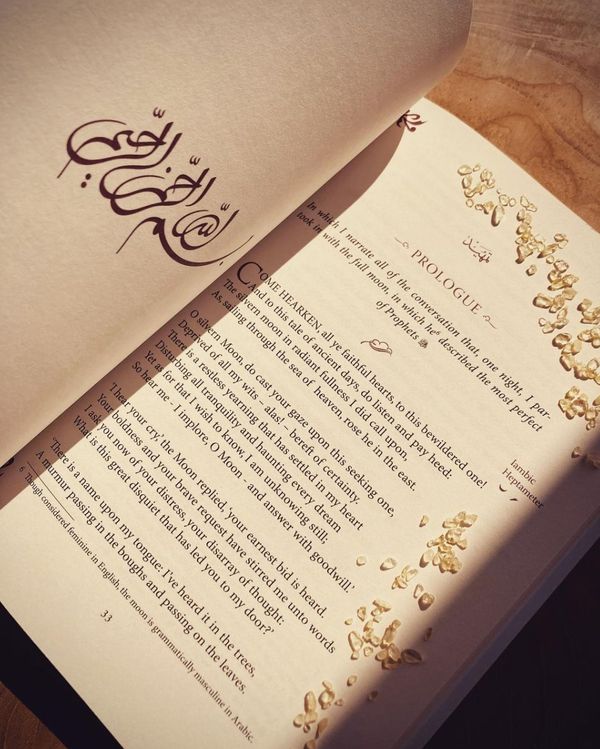 بسم الله الرحمن الرحيم
تمهيد
PROLOGUE
In which I narrate all of the conversation that, one night, I par-
took in with the full moon, in which he⁶ described the most perfect
of Prophets ﷺ
COME HEARKEN, all ye faithful hearts, to this bewildered one!
And to this tale of ancient days, do listen and pay heed:
The silvern moon in radiant fullness I did call upon,
As, sailing through the sea of heaven, rose he in the east.
Iambic
Heptameter
O silvern Moon, do cast your gaze upon this seeking one,
Deprived of all my wits – alas! – bereft of certainty.
There is a restless yearning that has settled in my heart
Disturbing all tranquility and haunting every dream
Yet as for that I wish to know, I am unknowing still;
So hear me - I implore, O Moon - and answer with goodwill.'
'I hear your cry,' the Moon replied, 'your earnest bid is heard.
Your boldness and your brave request have stirred me unto words
I ask you now of your distress, your disarray of thought:
What is this great disquiet that has led you to my door?'
'There is a name upon my tongue: I've heard it in the trees,
A murmur passing in the boughs and passing on the leaves.
6 Though considered feminine in English, the moon is grammatically masculine in Arabic.
33